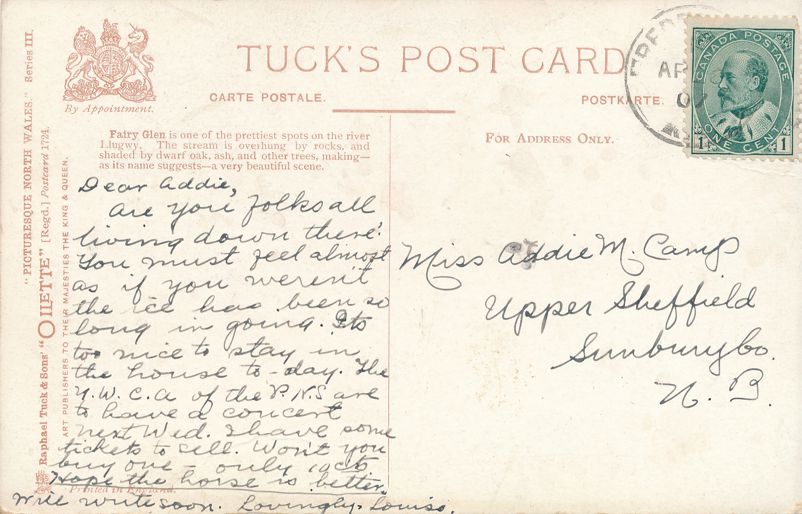 TUCK'S POST CARD
By Appointment.
CARTE POSTALE.
POSTKARTE.
"PICTURESQUE NORTH WALES." Series III.
Raphael Tuck & Sons' "OILETTE" [Regd.] Postcard 1724.
ART PUBLISHERS TO THEIR MAJESTIES THE KING & QUEEN.
Fairy Glen is one of the prettiest spots on the river
Llugwy. The stream is overhung by rocks, and
shaded by dwarf oak, ash, and other trees, making—
as its name suggests—a very beautiful scene.
FOR ADDRESS ONLY.
Dear Addie,
Are you folks all
living down there?
You must feel almost
as if you weren't
the ice has been so
long in going. Its
too nice to stay in
the house to-day. The
Y.W.C.A of the P.N.S are
to have a concert
next Wed. I have some
tickets to sell. Won't you
buy one – only 10cts
Hope the horse is better.
Printed in England.
Will write soon. Lovingly, Louise.
Miss Addie M. Camp
Upper Sheffield
Sunbury Co.
N. B.
CANADA POSTAGE
ONE CENT
1 1
AP